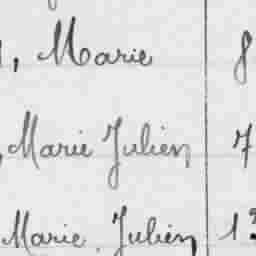 , Marie 8
, Marie Julien 7
Marie Julien 13